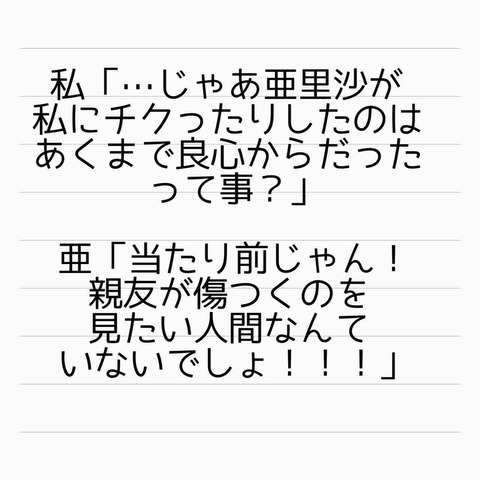 私「…じゃあ亜里沙が
私にチクったりしたのは
あくまで良心からだった
って事？」
亜「当たり前じゃん！
親友が傷つくのを
見たい人間なんて
いないでしょ！！！」